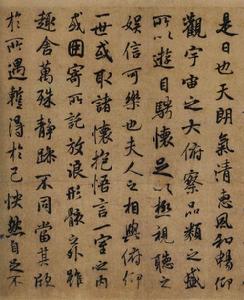 是日也天朗氣清惠風和暢仰
觀宇宙之大俯察品類之盛
所以遊目騁懷足以極視聽之
娛信可樂也夫人之相與俯仰
一世或取諸懷抱悟言一室之內
或因寄所託放浪形骸之外雖
趣舍萬殊靜躁不同當其欣
於所遇蹔得於己快然自足不